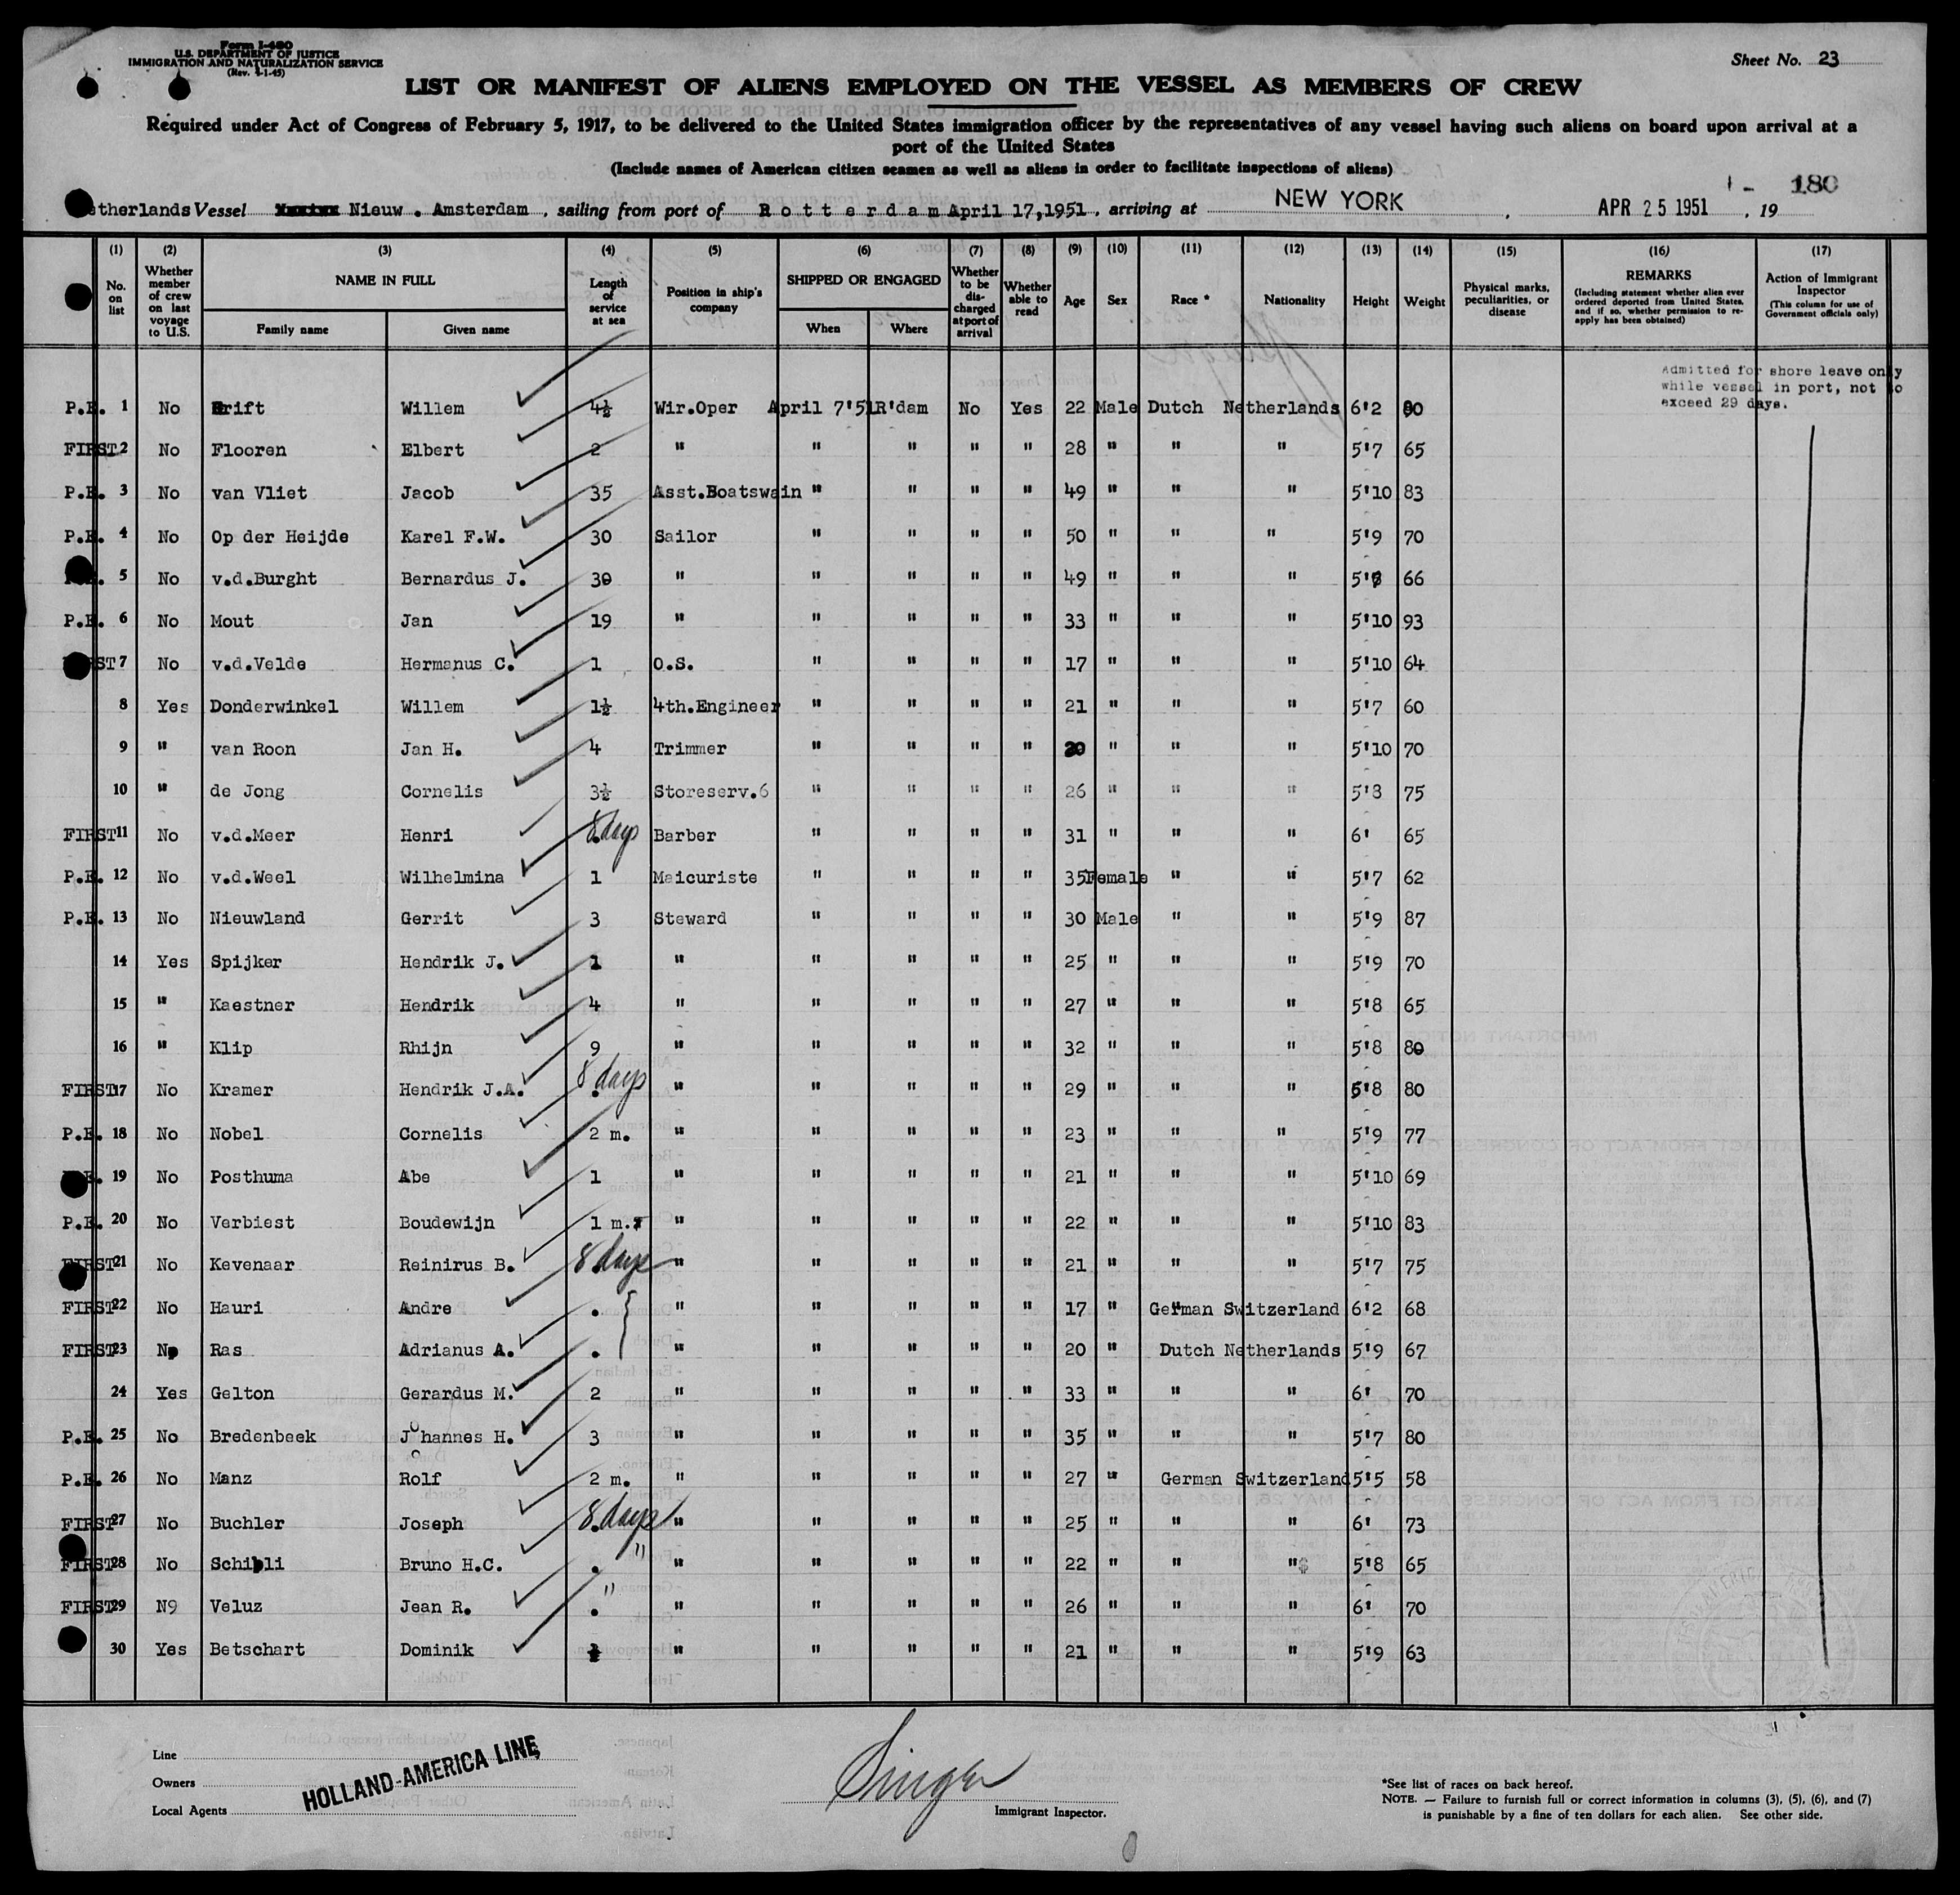 Form I-480
U.S. DEPARTMENT OF JUSTICE
IMMIGRATION AND NATURALIZATION SERVICE
(Rev. 4-1-45)
Sheet No. 23
LIST OR MANIFEST OF ALIENS EMPLOYED ON THE VESSEL AS MEMBERS OF CREW
Required under Act of Congress of February 5, 1917, to be delivered to the United States immigration officer by the representatives of any vessel having such aliens on board upon arrival at a
port of the United States
(Include names of American citizen seamen as well as aliens in order to facilitate inspections of aliens)
1 - 180
etherlands Vessel Nieuw . Amsterdam , sailing from port of Rotterdam April 17,1951 , arriving at NEW YORK , APR 25 1951 , 19
(1) (2) (3) (4) (5) (6) (7) (8) (9) (10) (11) (12) (13) (14) (15) (16) (17)
No. on list | Whether member of crew on last voyage to U.S. | NAME IN FULL Family name Given name | Length of service at sea | Position in ship's company | SHIPPED OR ENGAGED When Where | Whether to be discharged at port of arrival | Whether able to read | Age | Sex | Race * | Nationality | Height | Weight | Physical marks, peculiarities, or disease | REMARKS (Including statement whether alien ever ordered deported from United States, and if so, whether permission to re-apply has been obtained) | Action of Immigrant Inspector (This column for use of Government officials only)
Admitted for shore leave only
while vessel in port, not to
exceed 29 days.
P.E. 1 No Drift Willem 4½ Wir.Oper April 7'51 R'dam No Yes 22 Male Dutch Netherlands 6'2 80
FIRST 2 No Flooren Elbert 2 " " " " " 28 " " " 5'7 65
P.E. 3 No van Vliet Jacob 35 Asst.Boatswain " " " " 49 " " " 5'10 83
P.E. 4 No Op der Heijde Karel F.W. 30 Sailor " " " " 50 " " " 5'9 70
P.E. 5 No v.d.Burght Bernardus J. 30 " " " " " 49 " " " 66
P.E. 6 No Mout Jan 19 " " " " " 33 " " " 5'10 93
FIRST 7 No v.d.Velde Hermanus C. 1 O.S. " " " " 17 " " " 5'10 64
8 Yes Donderwinkel Willem 1½ 4th.Engineer " " " " 21 " " " 5'7 60
9 " van Roon Jan H. 4 Trimmer " " " " " " " 5'10 70
10 " de Jong Cornelis 3½ Storeserv.6 " " " " 26 " " " 5'8 75
FIRST 11 No v.d.Meer Henri 8 days Barber " " " " 31 " " " 6' 65
P.E. 12 No v.d.Weel Wilhelmina 1 Maicuriste " " " " 35 Female " " 5'7 62
P.E. 13 No Nieuwland Gerrit 3 Steward " " " " 30 Male " " 5'9 87
14 Yes Spijker Hendrik J. 1 " " " " " 25 " " " 5'9 70
15 " Kaestner Hendrik 4 " " " " " 27 " " " 5'8 65
16 " Klip Rhijn 9 " " " " " 32 " " " 5'8 80
FIRST 17 No Kramer Hendrik J.A. 8 days " " " " " 29 " " " 5'8 80
P.E. 18 No Nobel Cornelis 2 m. " " " " " 23 " " " 5'9 77
P.E. 19 No Posthuma Abe 1 " " " " " 21 " " " 5'10 69
P.E. 20 No Verbiest Boudewijn 1 m. " " " " " 22 " " " 5'10 83
FIRST 21 No Kevenaar Reinirus B. 8 days " " " " " 21 " " " 5'7 75
FIRST 22 No Hauri Andre . " " " " " 17 " German Switzerland 6'2 68
FIRST 23 No Ras Adrianus A. . " " " " " 20 " Dutch Netherlands 5'9 67
24 Yes Gelton Gerardus M. 2 " " " " " 33 " " " 6' 70
P.E. 25 No Bredenbeek Johannes H. 3 " " " " " 35 " " " 5'7 80
P.E. 26 No Manz Rolf 2 m. " " " " " 27 " German Switzerland 5'5 58
FIRST 27 No Buchler Joseph 8 days " " " " " 25 " " " 6' 73
FIRST 28 No Schibli Bruno H.C. . " " " " " " 22 " " " 5'8 65
FIRST 29 N9 Veluz Jean R. . " " " " " " 26 " " " 6' 70
30 Yes Betschart Dominik " " " " " 21 " " " 5'9 63
Line
Owners
Local Agents
HOLLAND-AMERICA LINE
Singer
Immigrant Inspector.
*See list of races on back hereof.
NOTE. — Failure to furnish full or correct information in columns (3), (5), (6), and (7)
is punishable by a fine of ten dollars for each alien. See other side.